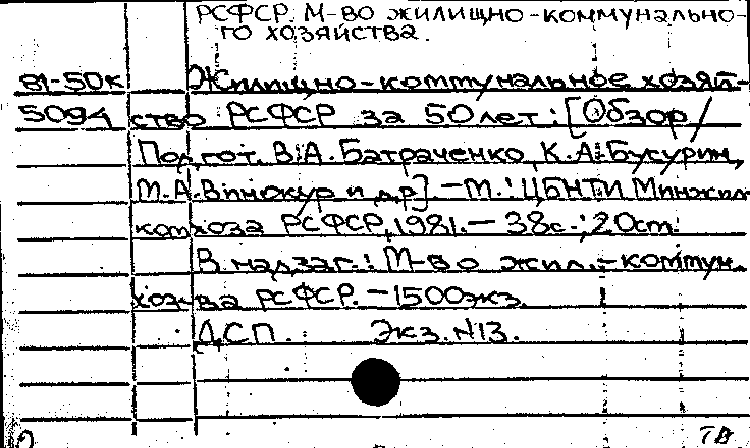 РСФСР. М-во жилищно-коммунально-
го хозяйства.
81-50к Жилищно-коммунальное хозяй-
5094 ство РСФСР за 50 лет: [Обзор /
Подгот. В.А. Батраченко, К.А. Бусурин,
М.А. Винокур и др]. – М.: ЦБНТИ Минжил-
комхоза РСФСР, 1981. – 38с.; 20см.
В надзаг.: М-во жил.-коммун.
хоз-ва РСФСР. – 1500экз.
ДСП. Экз. N13.